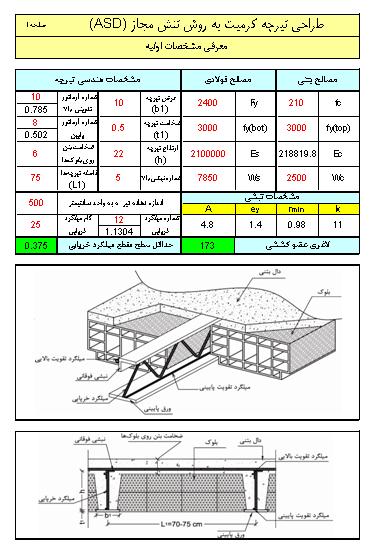 طراحی تیرچه کرمیت به روش تنش مجاز (ASD)
صفحه 1
معرفی مشخصات اولیه
مصالح بتنی
مصالح فولادی
مشخصات هندسی تیرچه
fc 210 Fy 2400 عرض تیرچه (b1) 10 شماره آرماتور تقویتی بالا 10 0.785
fy(top) 3000 fy(bot) 3000 ضخامت تیرچه (t1) 0.5 شماره آرماتور پایین 8 0.502
Ec 218819.8 Es 2100000 ارتفاع تیرچه (h) 22 ضخامت بتن روی بلوک‌ها 6
Wc 2500 Ws 7850 شماره نبشی بالا 5 فاصله تیرچه‌ها (L1) 75
مشخصات نبشی
A ey rmin k
4.8 1.4 0.98 11
500
شماره میلگرد خرپایی 12 1.1304 گام میلگرد خرپایی 25
لاغری عضو کششی 173 حداقل سطح مقطع میلگرد خرپایی 0.375
دال بتنی
بلوک
میلگرد تقویت بالایی
نبشی فوقانی
میلگرد تقویت پایینی
میلگرد خرپایی
ورق پایینی
ضخامت بتن روی بلوک‌ها
نبشی فوقانی
بلوک
دال بتنی
میلگرد تقویت بالایی
میلگرد خرپایی
h
t1
b1
L1=70-75 cm
میلگرد تقویت پایینی
ورق پایینی